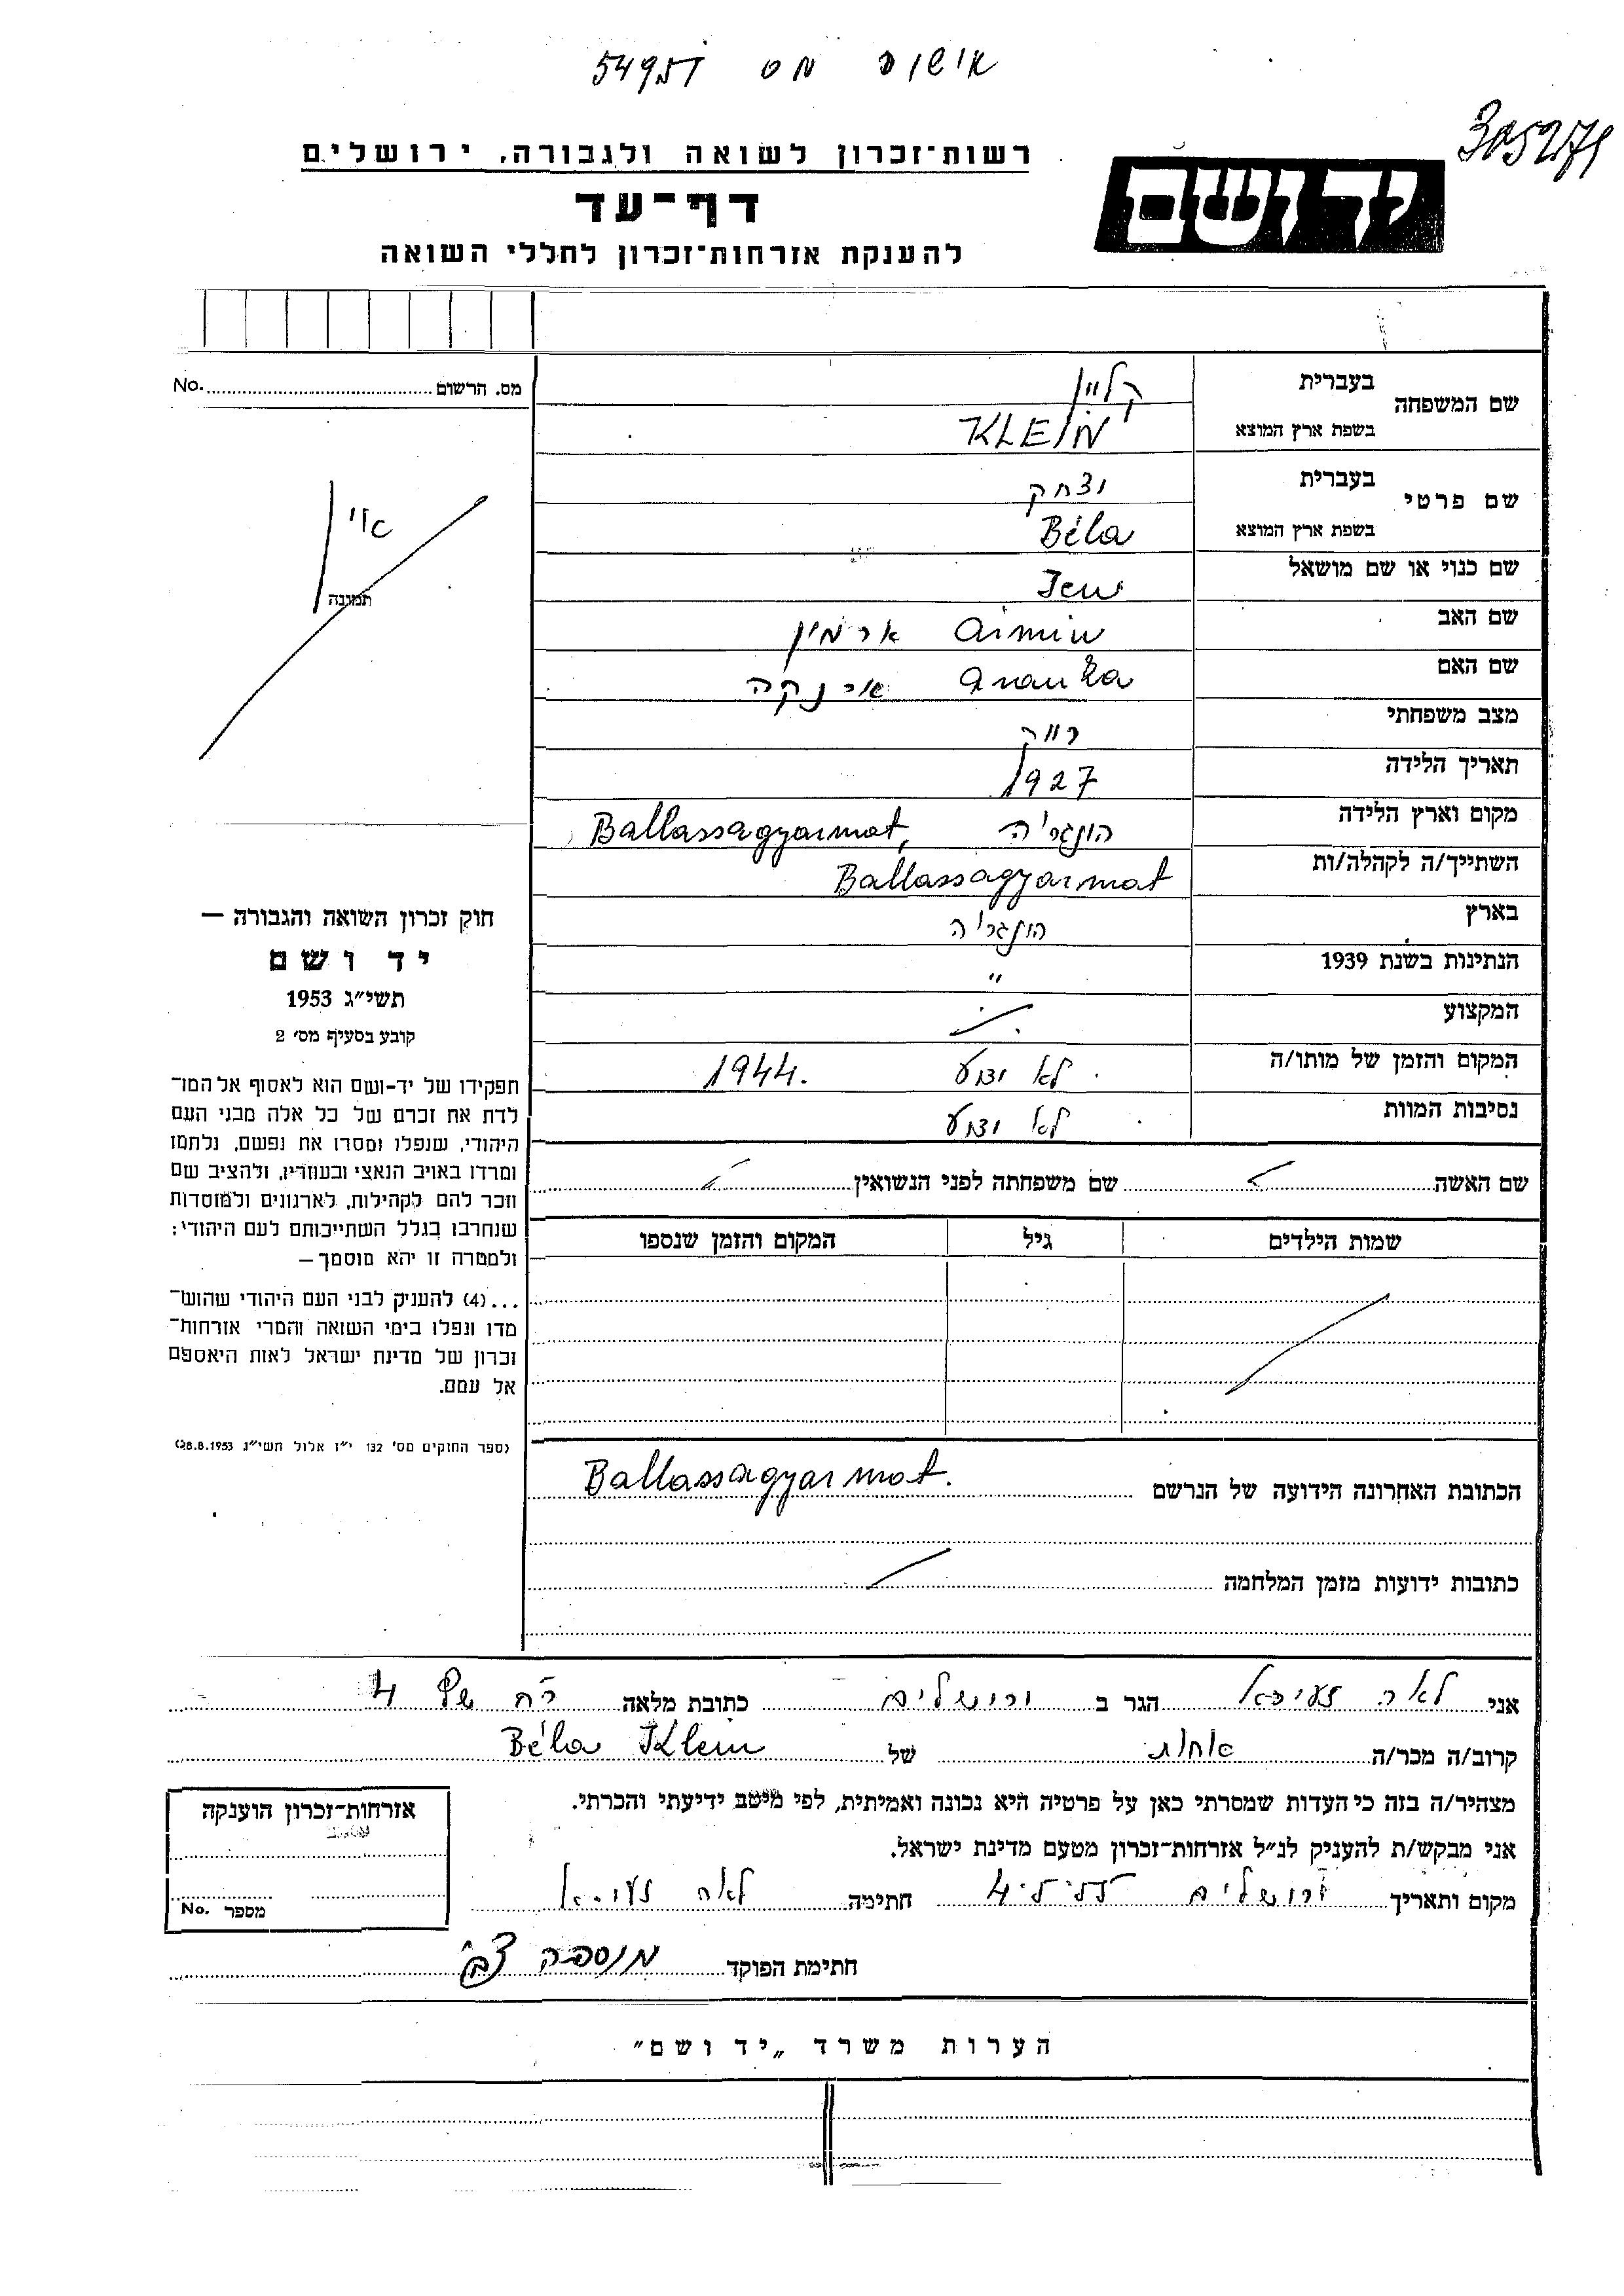 אישור מס
305279
רשות־זכרון לשואה ולגבורה, ירושלים
יד ושם
דף־עד
להענקת אזרחות־זכרון לחללי השואה
מס. הרשום No.
שם המשפחה בעברית קליין
בשפת ארץ המוצא KLEIN
שם פרטי בעברית יצחק
בשפת ארץ המוצא Béla
שם כנוי או שם מושאל
שם האב Armin ארמין
שם האם Aranka
מצב משפחתי רווק
תאריך הלידה 1927
מקום וארץ הלידה הונגריה Ballassagyarmat,
השתייך/ה לקהלה/ות Ballassagyarmat
בארץ הונגריה
הנתינות בשנת 1939 "
המקצוע
המקום והזמן של מותו/ה לא ידוע 1944.
נסיבות המוות לא ידוע
תמונה
חוק זכרון השואה והגבורה —
יד ושם
תשי"ג 1953
קובע בסעיף מס' 2
תפקידו של יד-ושם הוא לאסוף אל המו־
לדת את זכרם של כל אלה מבני העם
היהודי, שנפלו ומסרו את נפשם, נלחמו
ומרדו באויב הנאצי ובעוזריו, ולהציב שם
וזכר להם לקהילות, לארגונים ולמוסדות
שנחרבו בגלל השתייכותם לעם היהודי;
ולמטרה זו יהא מוסמך —
...(4) להעניק לבני העם היהודי שהוש־
מדו ונפלו בימי השואה והמרי אזרחות־
זכרון של מדינת ישראל לאות היאספם
אל עמם.
(ספר החוקים מס' 132 י"ז אלול תשי"ג 28.8.1953)
שם האשה שם משפחתה לפני הנשואין
שמות הילדים גיל המקום והזמן שנספו
הכתובת האחרונה הידועה של הנרשם Ballassagyarmat.
כתובות ידועות מזמן המלחמה
אני לאה הגר ב ירושלים כתובת מלאה רח 4
קרוב/ה מכר/ה אחות של Béla Klein
מצהיר/ה בזה כי העדות שמסרתי כאן על פרטיה היא נכונה ואמיתית, לפי מיטב ידיעתי והכרתי.
אני מבקש/ת להעניק לנ"ל אזרחות־זכרון מטעם מדינת ישראל.
מקום ותאריך ירושלים חתימה לאה
חתימת הפוקד
אזרחות־זכרון הוענקה
מספר No.
הערות משרד „יד ושם"